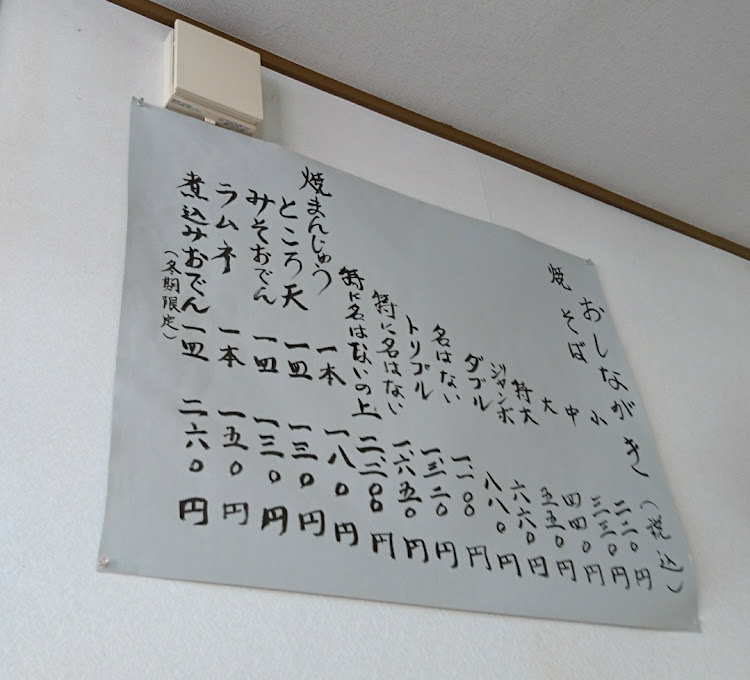 おしながき(税込)
焼そば
小 二二〇円
中 三三〇円
大 四四〇円
特大 五五〇円
ジャンボ 六六〇円
ダブル 八八〇円
名はない 一一〇〇円
トリプル 一三二〇円
特に名はない 一六五〇円
特に名はないの上 二二〇〇円
焼まんじゅう 一本 一八〇円
ところ天 一皿 一三〇円
みそおでん 一皿 一三〇円
ラムネ 一本 一五〇円
煮込みおでん 一皿 二六〇円
(冬期限定)